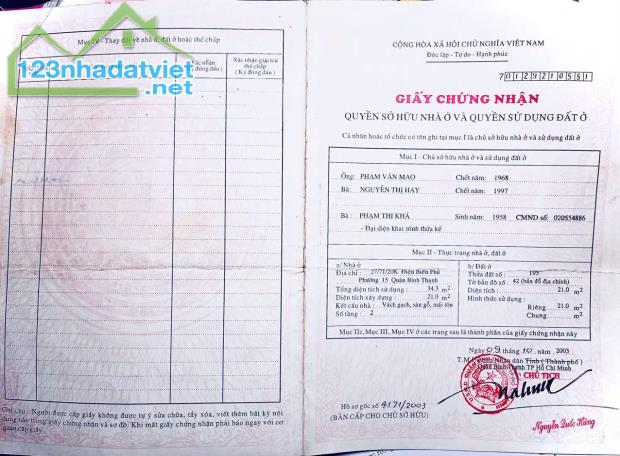 Mục IV - Thay đổi về nhà ở, đất ở hoặc thế chấp
Xác nhận
(Ký đóng dấu)
Xác nhận giải trừ
thế chấp
(Ký đóng dấu)
123nhadatviet.net
Ghi chú: Người được cấp giấy không được tự ý sửa chữa, tẩy xóa, viết thêm bất kỳ nội
dung nào trong giấy chứng nhận và sơ đồ. Khi mất giấy chứng nhận phải báo ngay với cơ
quan cấp giấy.
CỘNG HÒA XÃ HỘI CHỦ NGHĨA VIỆT NAM
Độc lập - Tự do - Hạnh phúc
70129210551
GIẤY CHỨNG NHẬN
QUYỀN SỞ HỮU NHÀ Ở VÀ QUYỀN SỬ DỤNG ĐẤT Ở
Cá nhân hoặc tổ chức có tên ghi tại mục I là chủ sở hữu nhà ở và sử dụng đất ở
Mục I - Chủ sở hữu nhà ở và sử dụng đất ở
Ông: PHẠM VĂN MAO Chết năm: 1968
Bà: NGUYỄN THỊ HAY Chết năm: 1997
Bà : PHẠM THỊ KHÁ Sinh năm: 1958 CMND số: 020554886
- Đại diện khai trình thừa kế
Mục II - Thực trạng nhà ở, đất ở
a/ Nhà ở
Địa chỉ : 27/71/20K Điện Biên Phủ
Phường 15 Quận Bình Thạnh
Tổng diện tích sử dụng : 34.3 m2
Diện tích xây dựng : 21.0 m2
Kết cấu nhà : Vách gạch, sàn gỗ, mái tôn
Số tầng : 2
b/ Đất ở
Thửa đất số : 195
Tờ bản đồ số : 42 (bản đồ địa chính)
Diện tích : 21.0 m2
Hình thức sử dụng:
Riêng 21.0 m2
Chung m2
Mục IIc, Mục III, Mục IV ở các trang sau là thành phần của giấy chứng nhận này
Ngày 09 tháng 10 năm 2003
T.M Nhân dân Tỉnh (Thành phố)
TP Hồ Chí Minh
CHỦ TỊCH
Hồ sơ gốc số 4171/2003
(BẢN CẤP CHO CHỦ SỞ HỮU)
Nguyễn Quốc Hùng